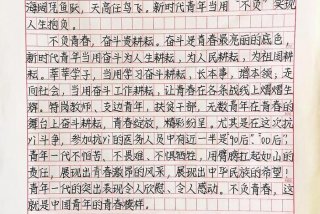 海阔凭鱼跃，天高任鸟飞。新时代青年当用“不负”实现
人生抱负。
不负青春，奋斗贵耕耘。奋斗是青春最亮丽的底色，
新时代青年当为人生耕耘，为人民耕耘，为祖国耕
耘。莘莘学子，当用学习奋斗耕耘，长本事，增本领，走
向社会，当用工作奋斗耕耘，让青春在各条战线上熠熠生
辉。特岗教师，支边青年，扶贫干部，无数青年在青春的
舞台上奋斗耕耘，青春绽放，精彩纷呈，尤其是在这次抗
斗争，参加抗的医务人员中有近一半是“90后”“00后”，
青年一代不怕苦、不畏难、不惧牺牲，用臂膀扛起如山的
责任，展现出青春激昂的风采，展现出中华民族的希望！
青年一代的突出表现令人欣慰、令人感动。不负青春，这
就是中国青年的青春模样。